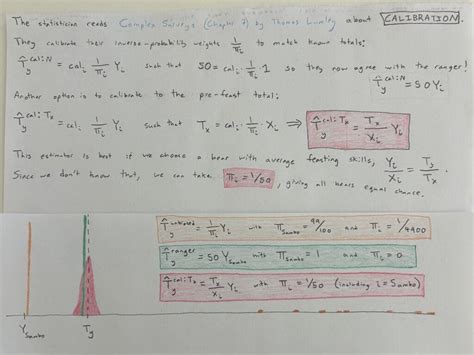 The statistician reads Complex Surveys (Chapter 7) by Thomas Lumley about CALIBRATION
They calibrate their inverse-probability weights 1/πi to match known totals:
T̂y^cal:N = cali · 1/πi Yi such that 50 = cali · 1/πi · 1 so they now agree with the ranger! T̂y^cal:N = 50Yi
Another option is to calibrate to the pre-feast total:
T̂y^cal:Tx = cali · 1/πi Yi such that Tx = cali · 1/πi · Xi ⇒ T̂y^cal:Tx = Tx/Xi Yi
This estimator is best if we choose a bear with average feasting skills, Yi/Xi = Ty/Tx.
Since we don't know that, we can take πi = 1/50, giving all bears equal chance.
T̂y^unbiased = 1/πi Yi with πSambo = 99/100 and πi = 1/4900
T̂y^ranger = 50 YSambo with πSambo = 1 and πi = 0
T̂y^cal:Tx = Tx/Xi Yi with πi = 1/50 (including i = Sambo)
YSambo Ty